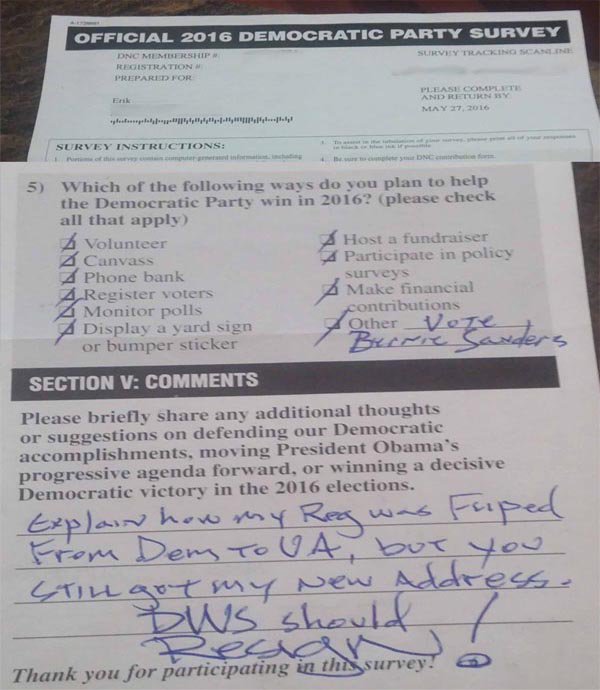 A-1739661
OFFICIAL 2016 DEMOCRATIC PARTY SURVEY
DNC MEMBERSHIP #:
REGISTRATION #:
PREPARED FOR:
SURVEY TRACKING SCANLINE
Erik
PLEASE COMPLETE
AND RETURN BY
MAY 27, 2016
SURVEY INSTRUCTIONS:
1. Portions of this survey contain computer-generated information, including
3. To assist in the tabulation of your survey, please print all of your responses
in black or blue ink if possible.
4. Be sure to complete your DNC contribution form.
5) Which of the following ways do you plan to help
the Democratic Party win in 2016? (please check
all that apply)
Volunteer
Canvass
Phone bank
Register voters
Monitor polls
Display a yard sign
or bumper sticker
Host a fundraiser
Participate in policy
surveys
Make financial
contributions
Other Vote
Bernie Sanders
SECTION V: COMMENTS
Please briefly share any additional thoughts
or suggestions on defending our Democratic
accomplishments, moving President Obama's
progressive agenda forward, or winning a decisive
Democratic victory in the 2016 elections.
Explain how my Reg was Fliped
From Dem to UA, but you
still got my new Address.
DWS should
Resign!
Thank you for participating in this survey!